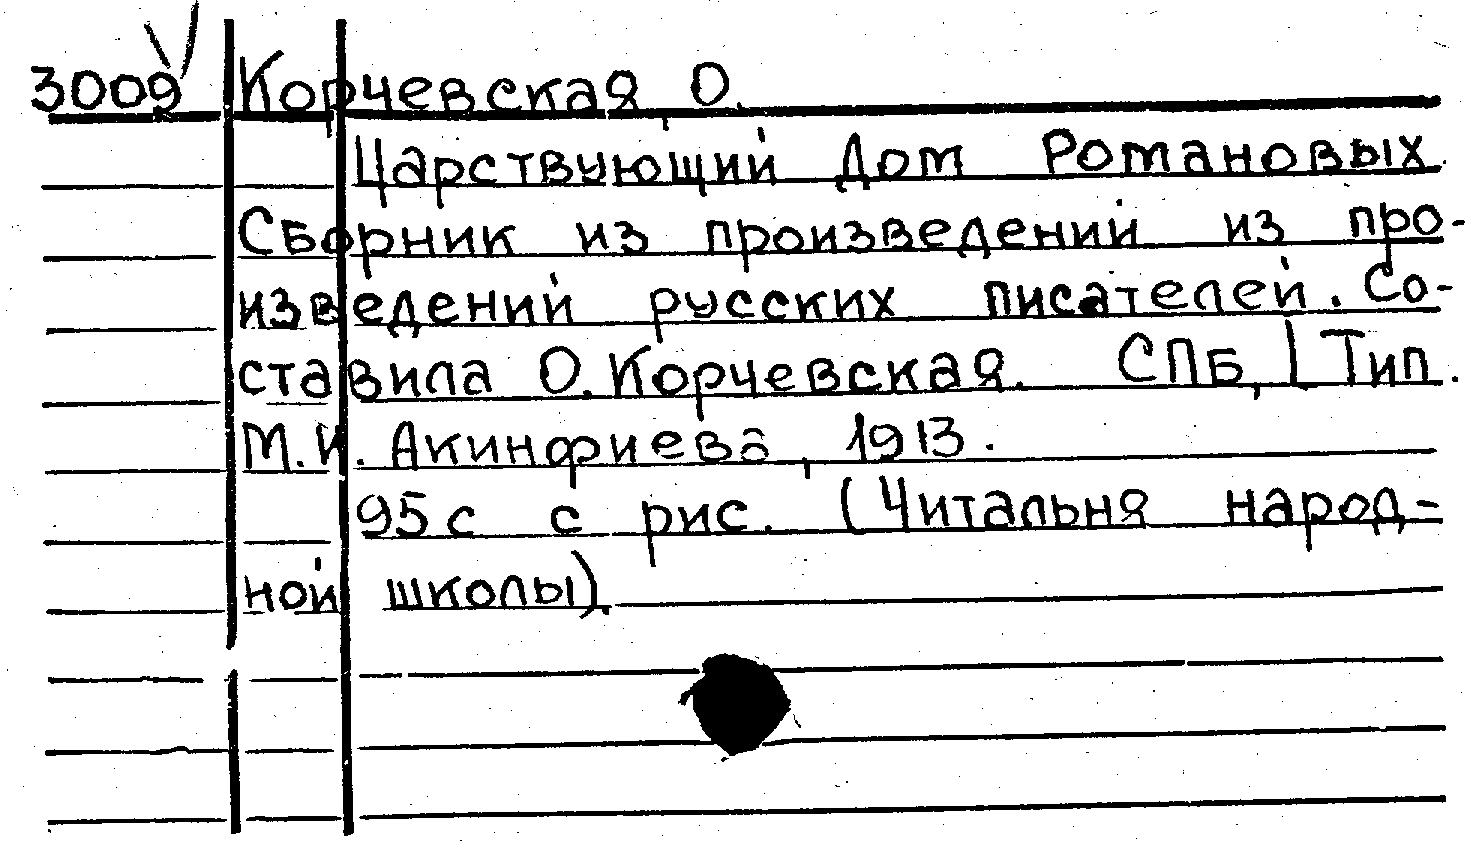 3009 Корчевская О.
Царствующий Дом Романовых.
Сборник из произведений из про-
изведений русских писателей. Со-
ставила О. Корчевская. СПБ, | Тип.
М.И. Акинфиева, 1913.
95 с с рис. (Читальня народ-
ной школы).